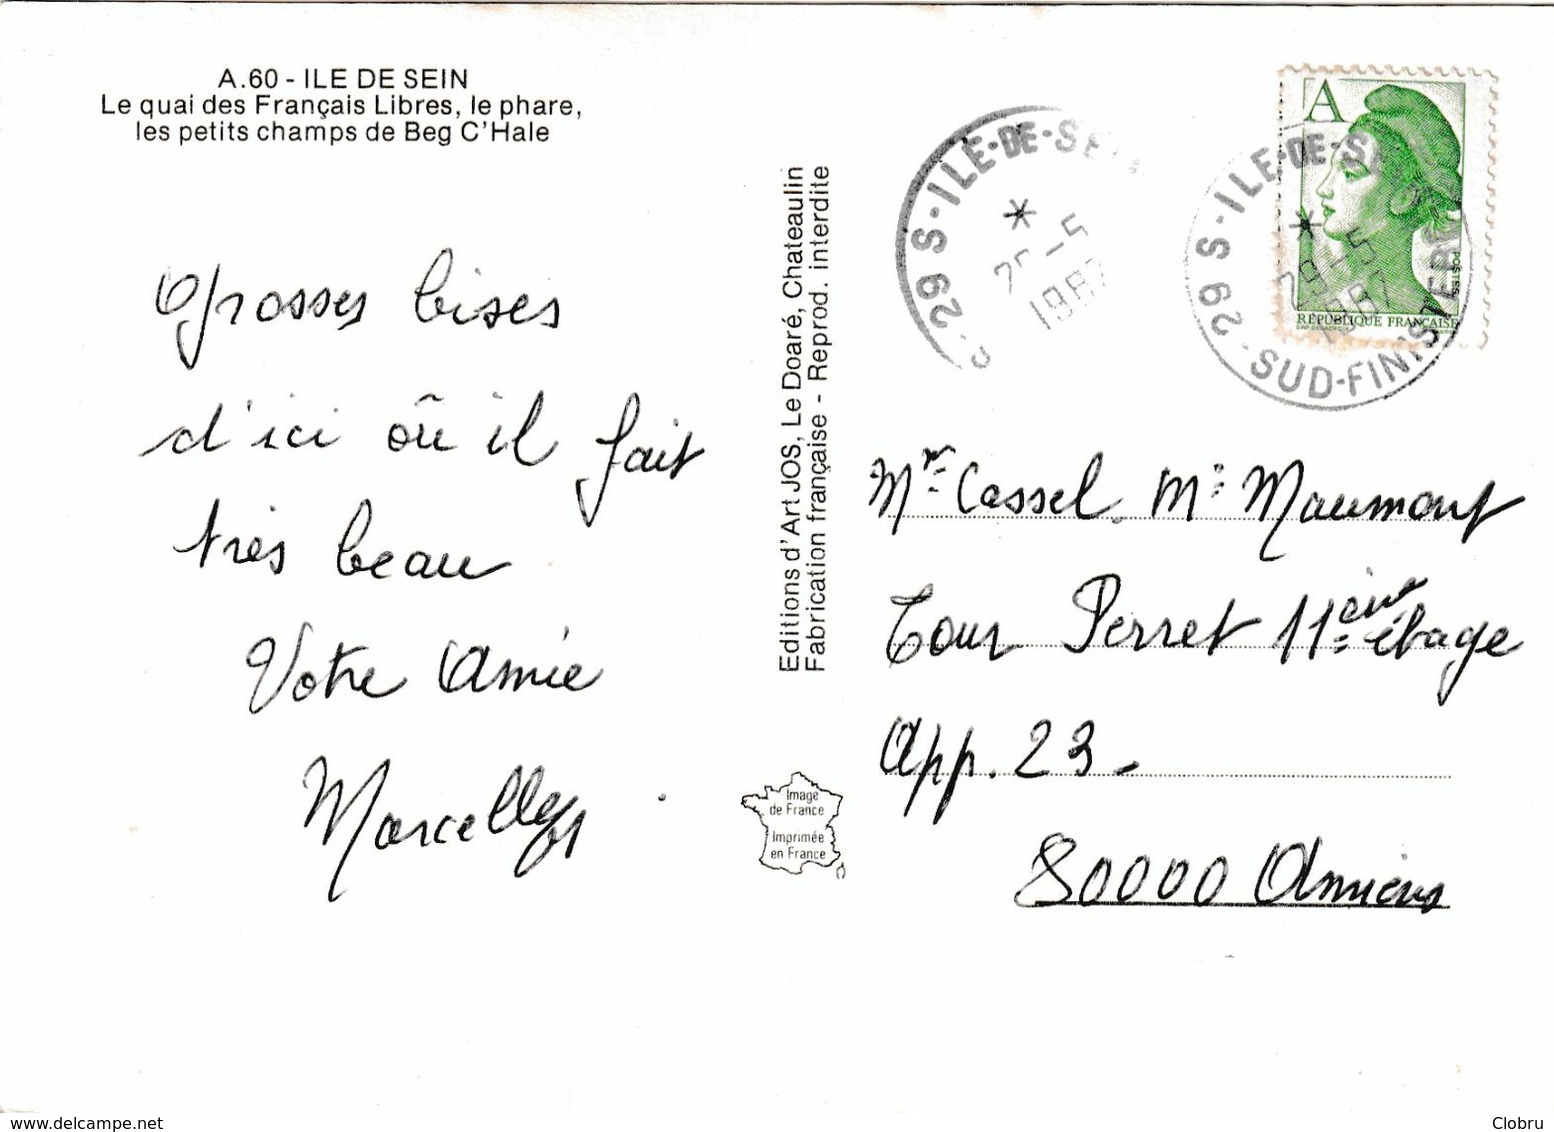 A.60 - ILE DE SEIN
Le quai des Français Libres, le phare,
les petits champs de Beg C'Hale
Grosses bises
d'ici où il fait
très beau
Votre Amie
Marcelle
Editions d'Art JOS, Le Doaré, Chateaulin
Fabrication française - Reprod. interdite
Image
de France
Imprimée
en France
29 S - ILE-DE-SEIN
* 
29-5
1987
A
POSTES
RÉPUBLIQUE FRANÇAISE
29 S - ILE-DE-SEIN
*
29-5
1987
SUD-FINISTERE
Mr Cassel. Me Maumont
Tour Perret 11ème étage
App. 23 -
80000 Amiens
delcampe.net
Clobru